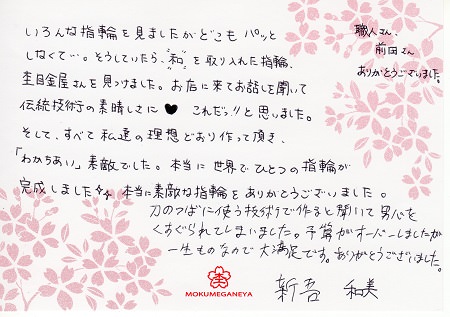 いろんな指輪を見ましたがどこもパッと
しなくて…。そうしていたら、"和"を取り入れた指輪、
杢目金屋さんを見つけました。お店に来てお話しを聞いて
伝統技術の素晴しさに♥ これだっ!!と思いました。
そして、すべて私達の理想どおり作って頂き、
「わかちあい」素敵でした。本当に世界でひとつの指輪が
完成しました 本当に素敵な指輪をありがとうございました。
職人さん、
前田さん
ありがとうございました。
刀のつばに使う技術で作ると聞いて男心を
くすぐられてしまいました。予算がオーバーしましたが
一生ものなので大満足です。ありがとうございました。
新吾 和美
MOKUMEGANEYA